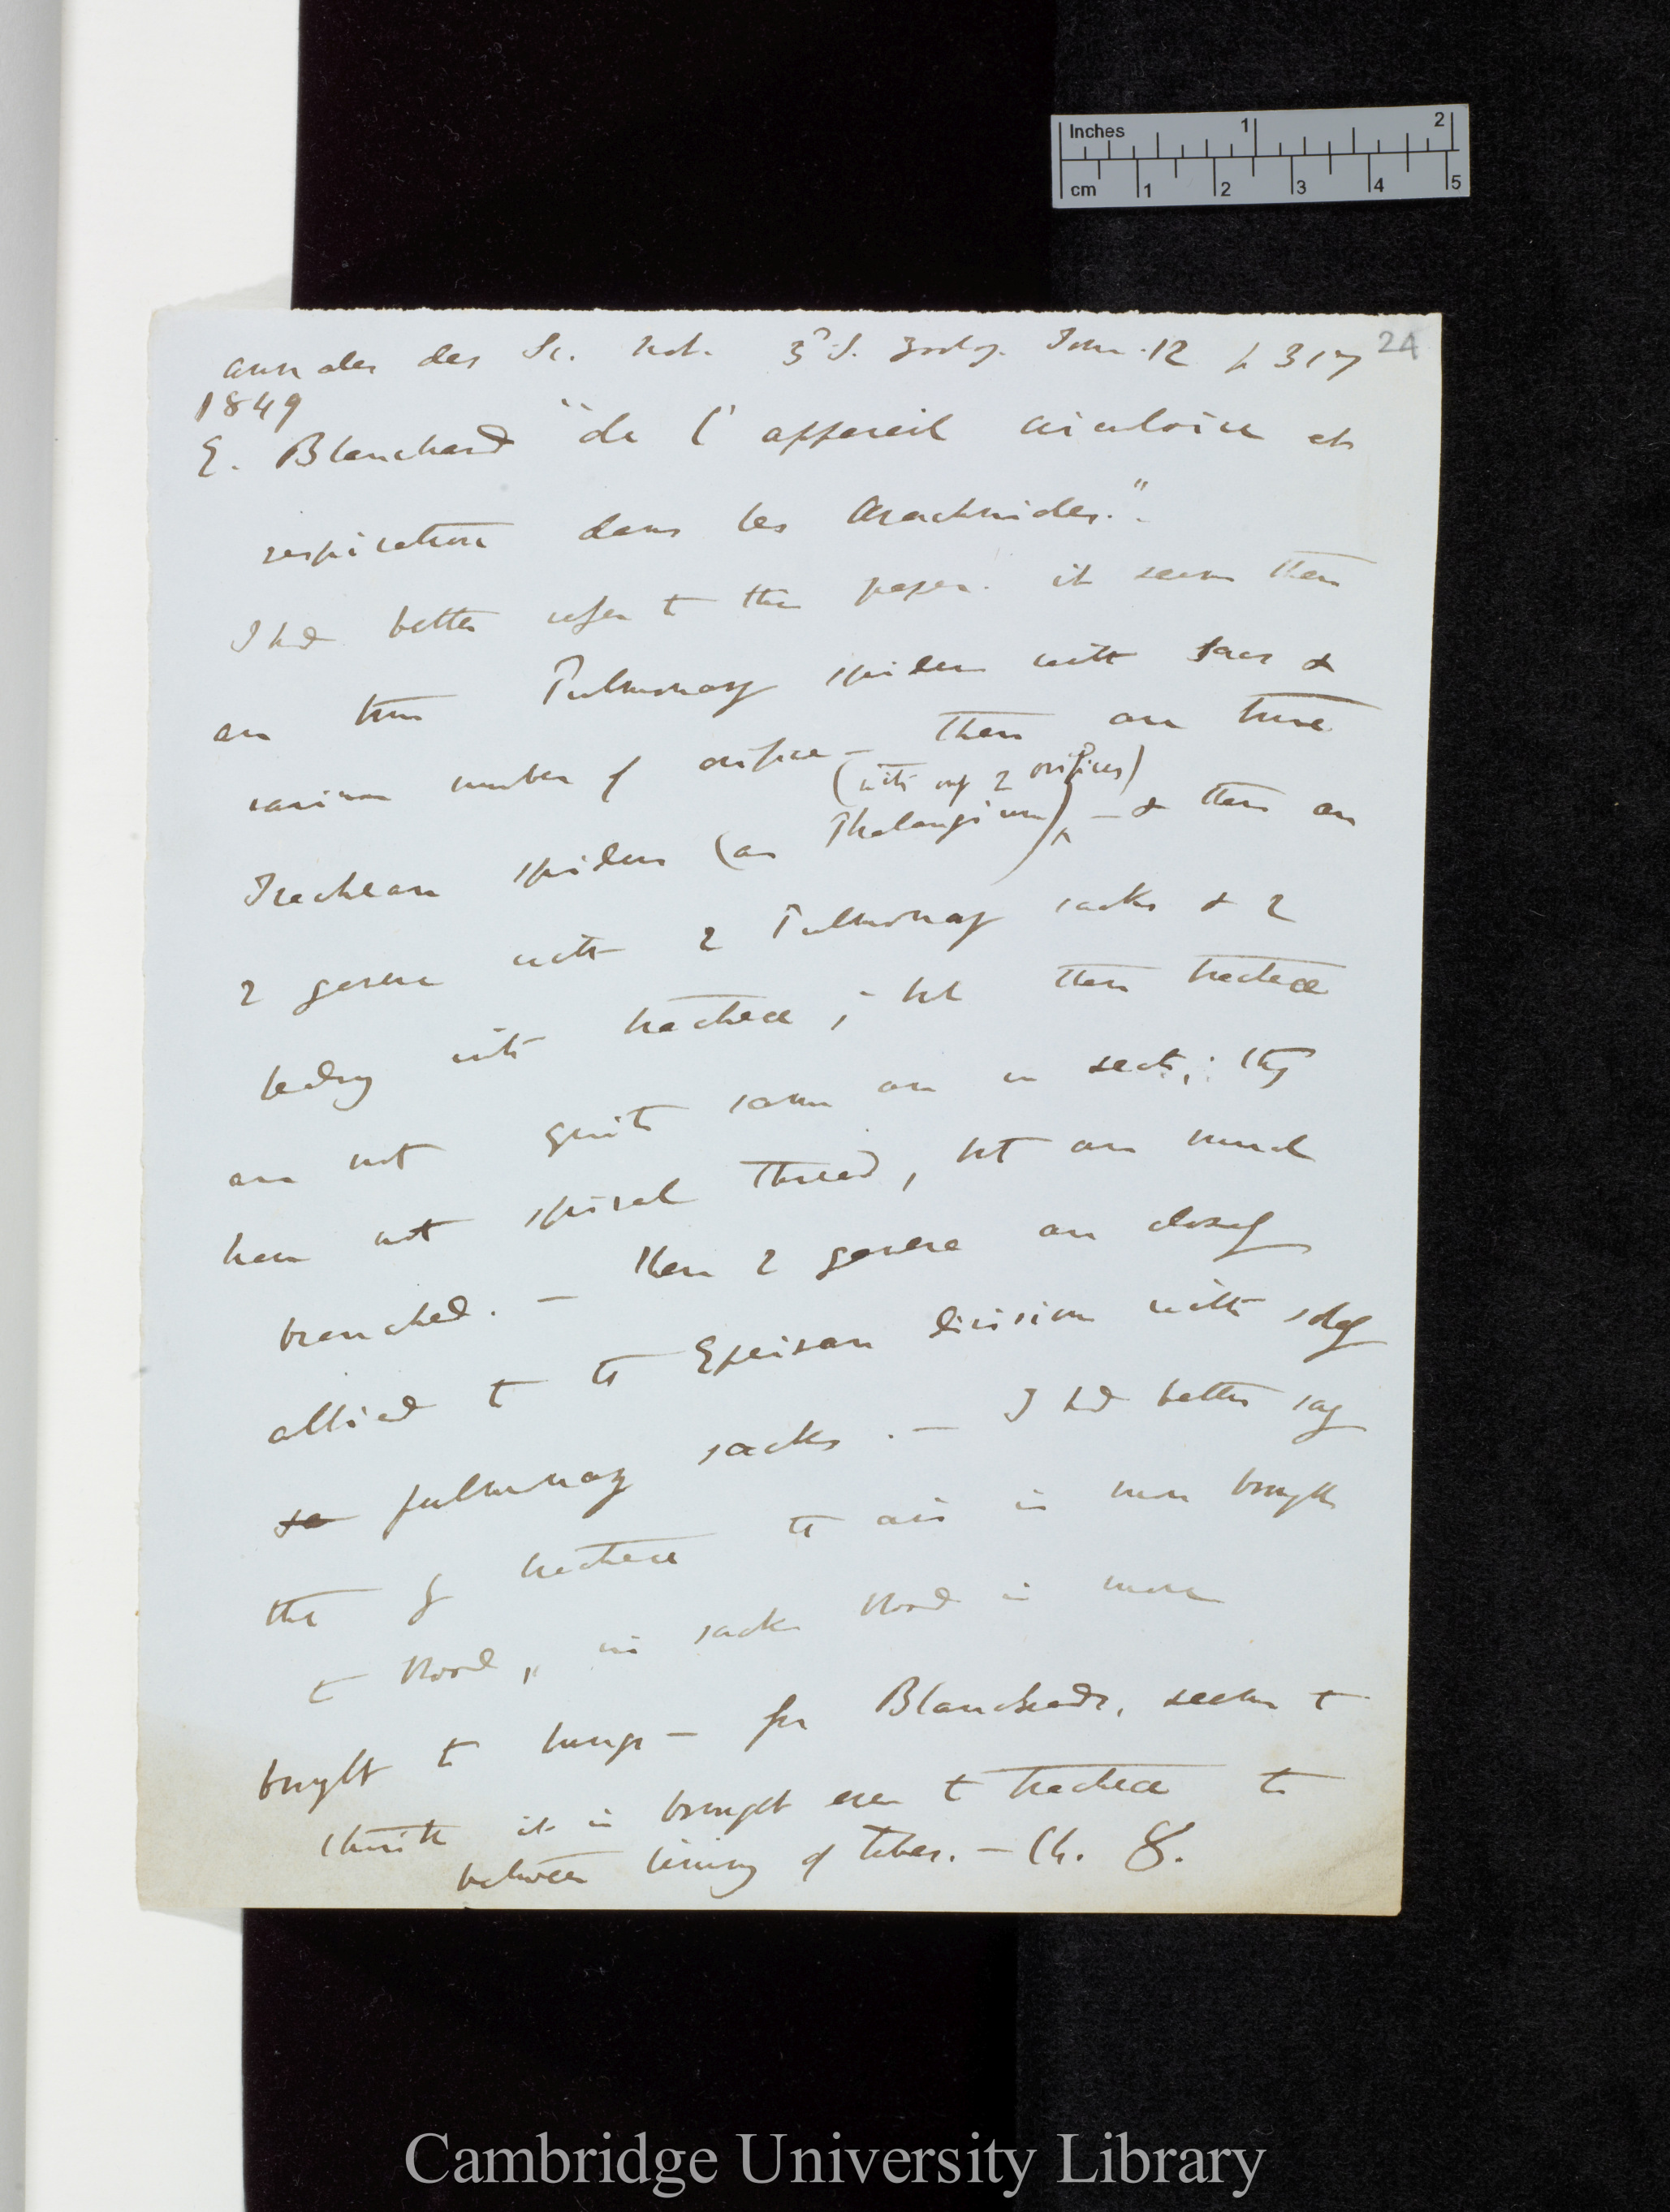 Inches 1 2
cm 1 2 3 4 5
24
Annales des Sc. Nat. 3d S. Zoolog. Tom. 12 p 317
1849
E. Blanchard "de l'appareil circuloire et
respiration dans les Arachnides."
I had better refer to this paper. it seems there
are true Pulmonary spiders with sacs &
various number of orifices — there are true
(with only 2 orifices)
Trachean spiders (as Phalangium)^ — & there are
2 genera with 2 Pulmonary sacks & 2
leading into tracheæ; — but these tracheæ
are not quite same as in insects; they
have not spiral thread, but are much
branched. — These 2 genera are closely
allied to the Epeiran division with solely
pulmonary sacks. — I had better say
that if tracheæ the air is more brought
to blood, in sacks blood is more
brought to lungs — for Blanchard, seems to
think it is brought even to tracheæ to
between lining of tubes. — Ch. 8.
Cambridge University Library